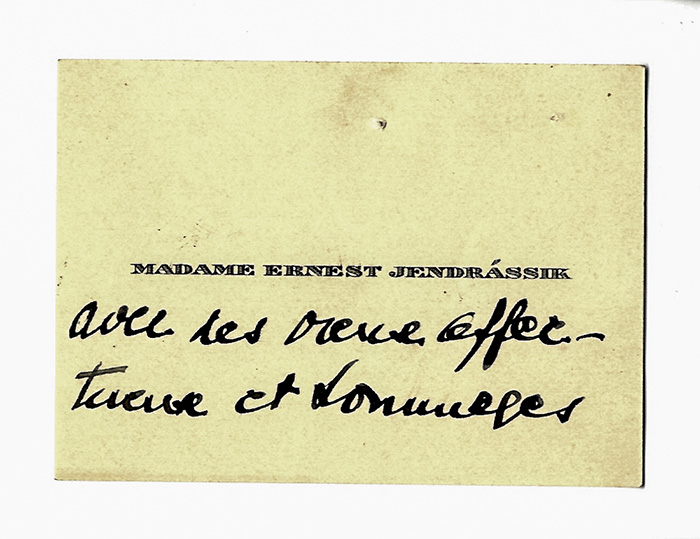 MADAME ERNEST JENDRÁSSIK
avec ses vœux affec-
tueux et hommages